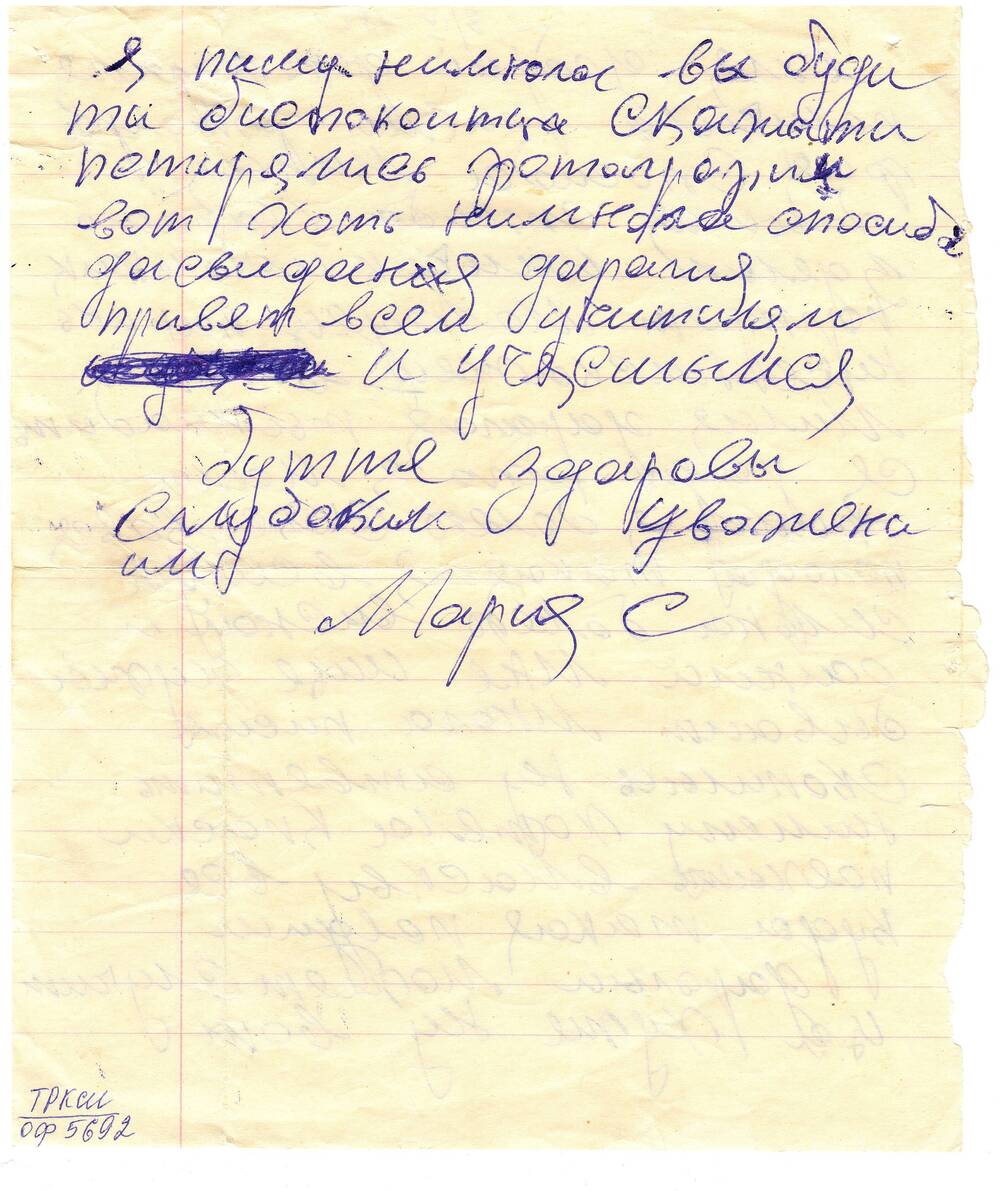 Я пишу нимнога вы буди
ти биспокоитца Скажыти
потирялись фотографии
вот хоть нимнога спасиба
дасвидания дарагия
привят всем учитилям
и учясчымся
буттте здаровы
Сглубоким уважени
им
Мария С
ТРКМ
ОФ 5692